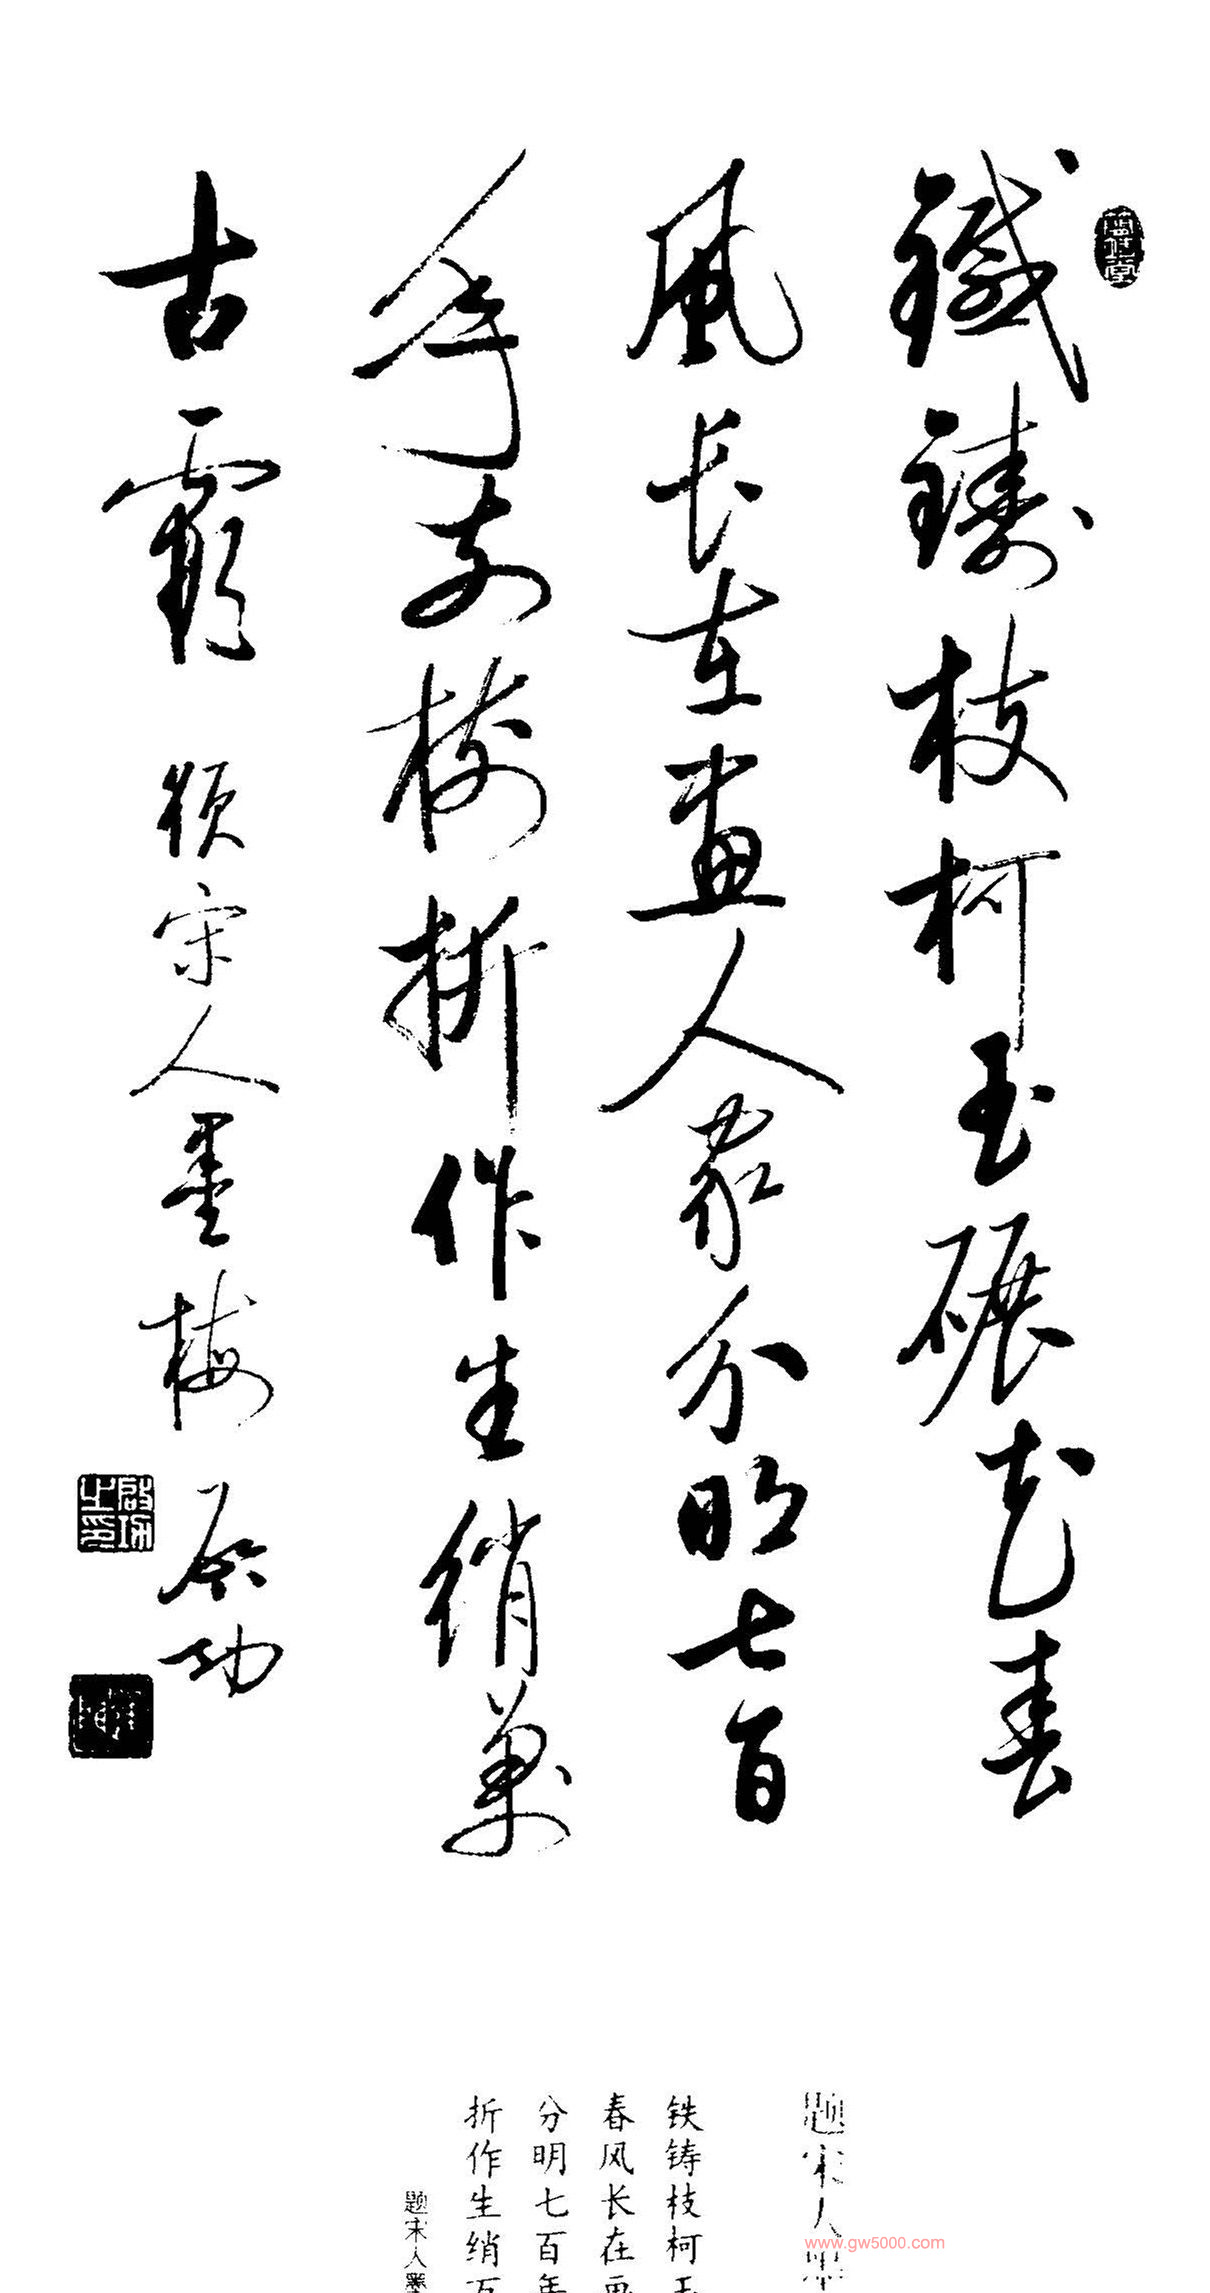 鐵鑄枝柯玉碾花春
風长在畫人家分明七百
年前樹折作生綃萬
古霞 題宋人墨梅 启功
啟功之印
题宋人墨
铁铸枝柯玉
春风长在画
分明七百年
折作生绡万
题宋人墨
www.gw5000.com